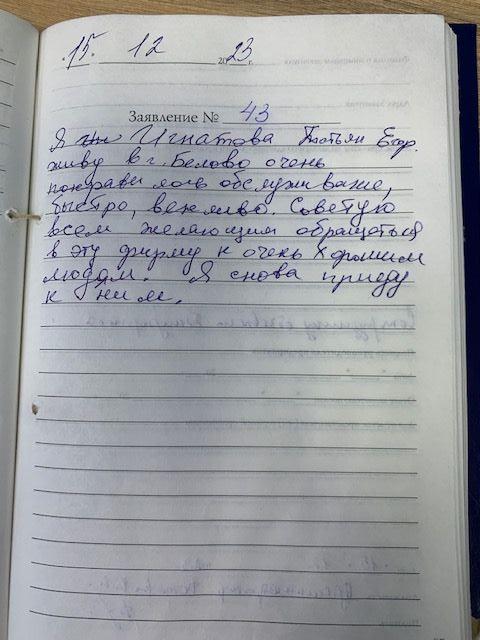 15. 12 2023 г.
Заявление № 43
Я Игнатова Татьян Егор.
живу в г. Белово очень
понравилось обслуживание,
быстро, вежливо. Советую
всем желающим обращаться
в эту фирму к очень хорошим
людям. Я снова приду
к ним.